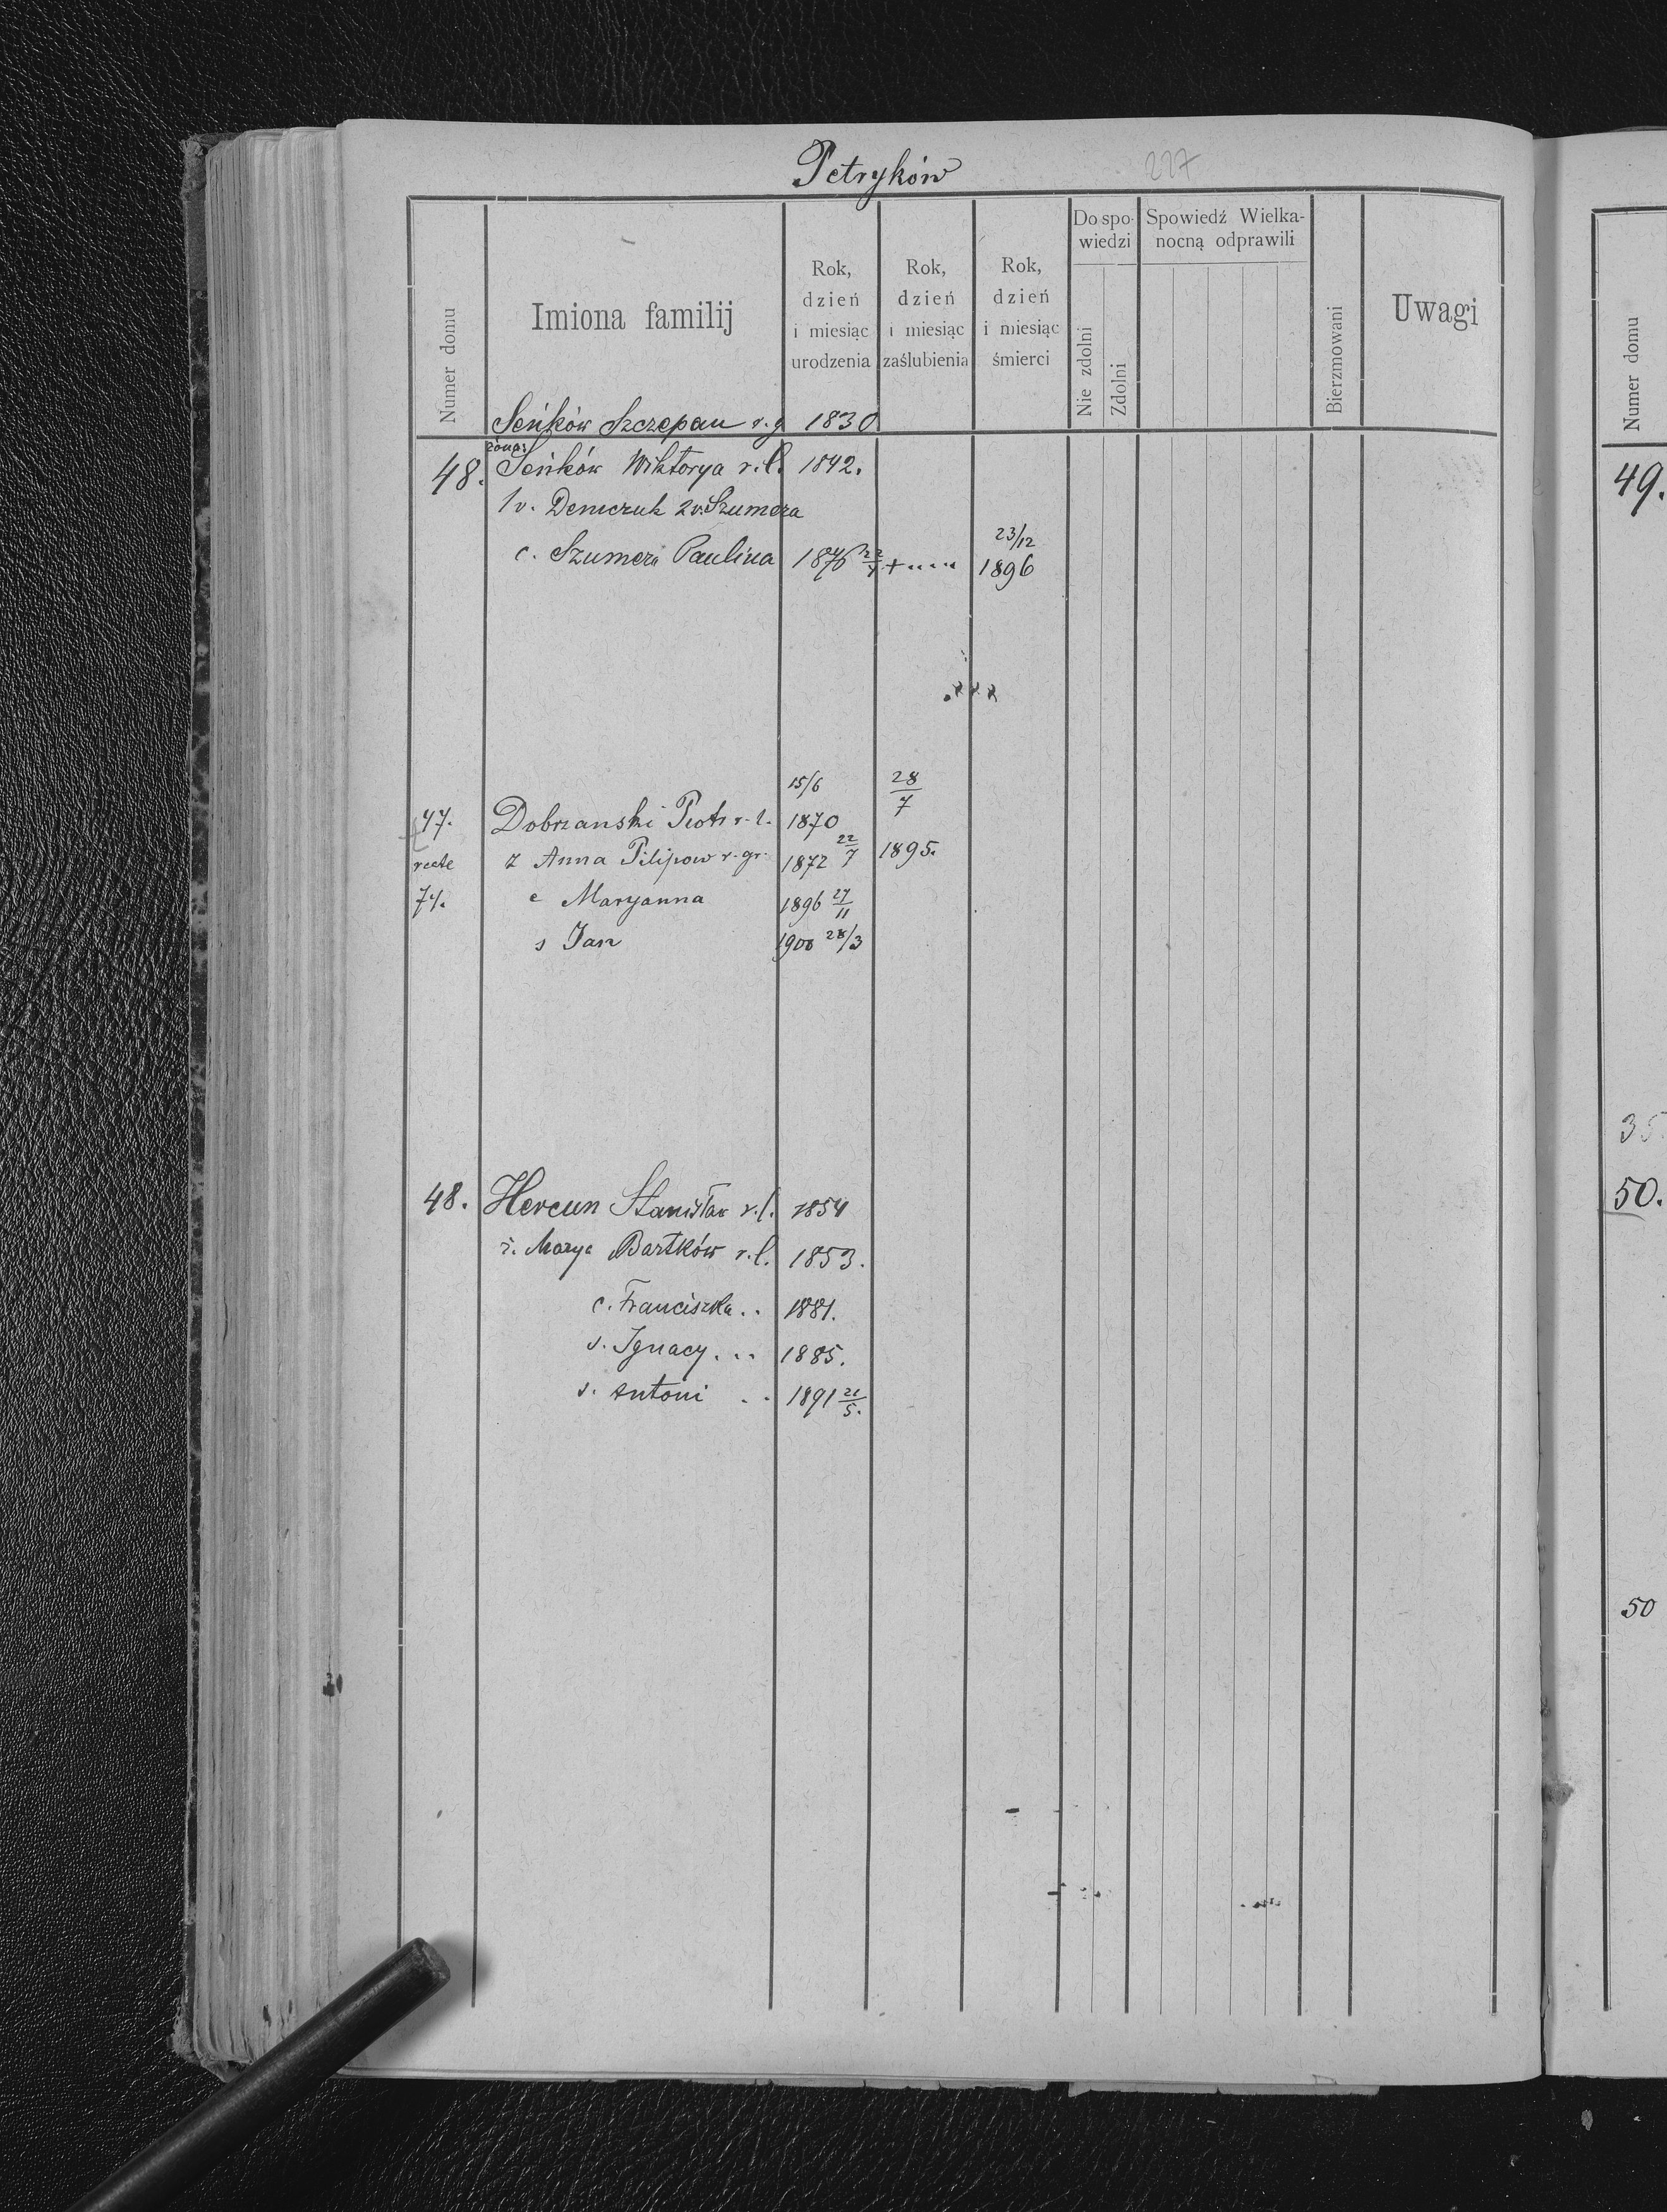 Petryków 227
Numer domu
Imiona familij
Rok, dzień i miesiąc urodzenia
Rok, dzień i miesiąc zaślubienia
Rok, dzień i miesiąc śmierci
Do spo-wiedzi
Nie zdolni
Zdolni
Spowiedź Wielka-nocną odprawili
Bierzmowani
Uwagi
Seńków Szczepan r.g 1830
żona:
48. Seńków Wiktorya r.l. 1842.
1v. Demczuk 2v. Szumera
23/12
c. Szumera Paulina 22/7 + .... 1896
15/6 28/7
47. Dobrzanski Piotr r.l. 1870
recte z Anna Pilipow r.gr. 1872 22/7 1895.
74. c Maryanna 1896 27/11
s Jan 1900 28/3
48. Hercun Stanisław r.l. 1854
ż. Marya Bartków r.l. 1853.
c. Franciszka .. 1881.
s. Ignacy ... 1885.
s. Antoni .. 1891 21/5.
Numer domu
49.
35
50.
50